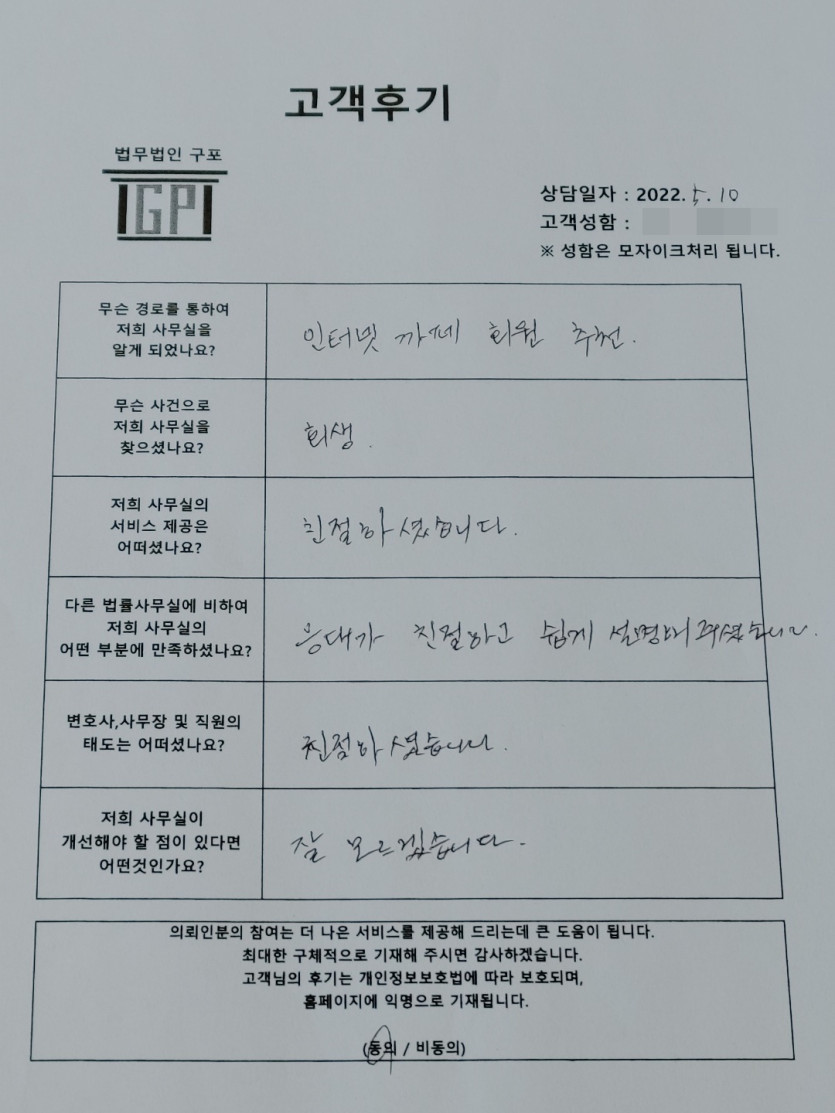 고객후기
법무법인 구포
IGPI
상담일자 : 2022. 5. 10
고객성함 :
※ 성함은 모자이크처리 됩니다.
무슨 경로를 통하여
저희 사무실을
알게 되었나요?
인터넷 까페 회원 추천.
무슨 사건으로
저희 사무실을
찾으셨나요?
회생.
저희 사무실의
서비스 제공은
어떠셨나요?
친절하셨습니다.
다른 법률사무실에 비하여
저희 사무실의
어떤 부분에 만족하셨나요?
응대가 친절하고 쉽게 설명해 주셨습니다.
변호사,사무장 및 직원의
태도는 어떠셨나요?
친절하셨습니다.
저희 사무실이
개선해야 할 점이 있다면
어떤것인가요?
잘 모르겠습니다.
의뢰인분의 참여는 더 나은 서비스를 제공해 드리는데 큰 도움이 됩니다.
최대한 구체적으로 기재해 주시면 감사하겠습니다.
고객님의 후기는 개인정보보호법에 따라 보호되며,
홈페이지에 익명으로 기재됩니다.
(동의 / 비동의)